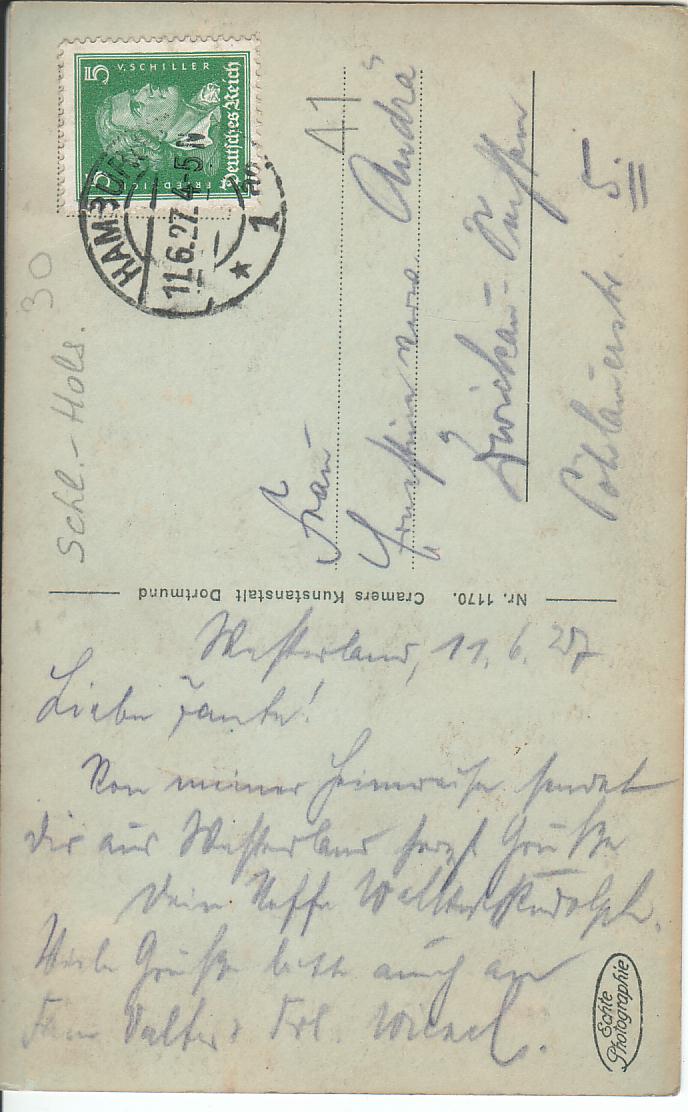 5 V. SCHILLER
Deutsches Reich
FRIEDR
HAMBURG
11.6.27. 4-5 N
* 1
A1
30
Schl.-Hols.
Frau
André
Zwickau
Pöhlauerstr. 5.
Nr. 1170. Cramers Kunstanstalt Dortmund
Westerland, 11. 6. 27
Liebe Tante!
Von meiner Heimreise sendet
Dir aus Westerland herzl Grüße
Dein Neffe Walter Rudolph.
Viele Grüße bitte auch an
Frl.
Echte
Photographie